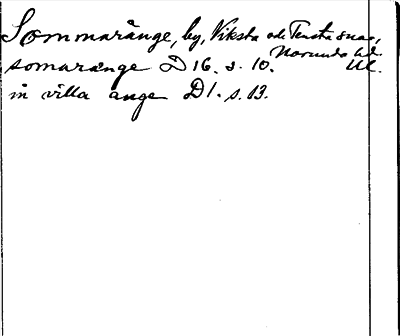 Sommaränge, by, Viksta och Tensta snar,
Norunda hd
somarænge D 16. s. 10. Ul.
in villa ange D1. s. 13.